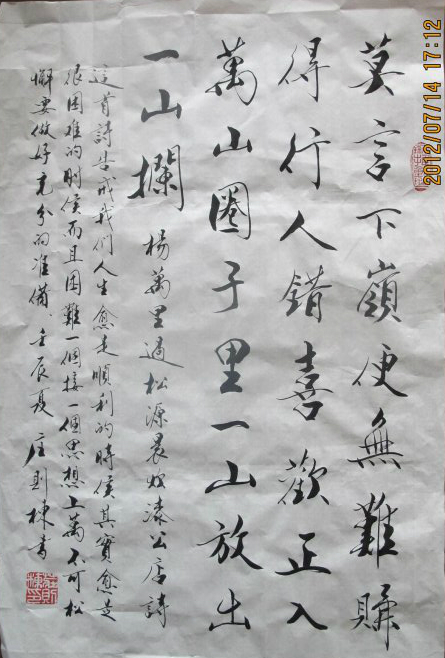 莫言下嶺便無難賺
得行人錯喜歡正入
萬山圈子里一山放出
一山攔 楊萬里過松源晨炊漆公店詩
這首詩告戒我們人生愈走順利的時候其實愈是
很困難的时候而且困難一個接一個思想上萬不可松
懈要做好充分的准備、壬辰夏庄則棟書
2012/07/14 17:12